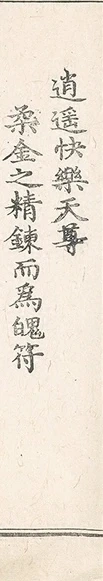 逍遥快樂天尊
桑金之精鍊而為魄符